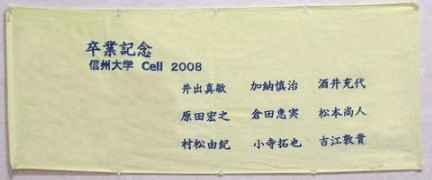 卒業記念
信州大学 Cell 2008
井出真敏 加納慎治 酒井充代
原田宏之 倉田恵実 松本尚人
村松由紀 小寺拓也 吉江敦貴